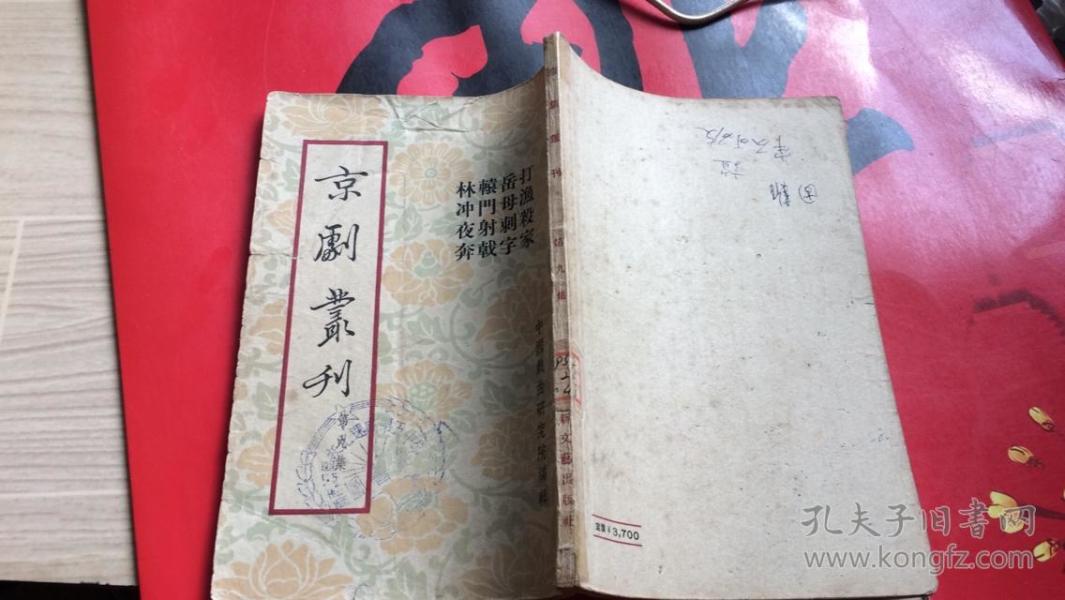 京劇叢刊
第九集
打漁殺家
岳母刺字
轅門射戟
林冲夜奔
中國戲曲研究院編輯
京劇叢刊 第九集
新文藝出版社
定價￥3,700
孔夫子旧书网
www.kongfz.com